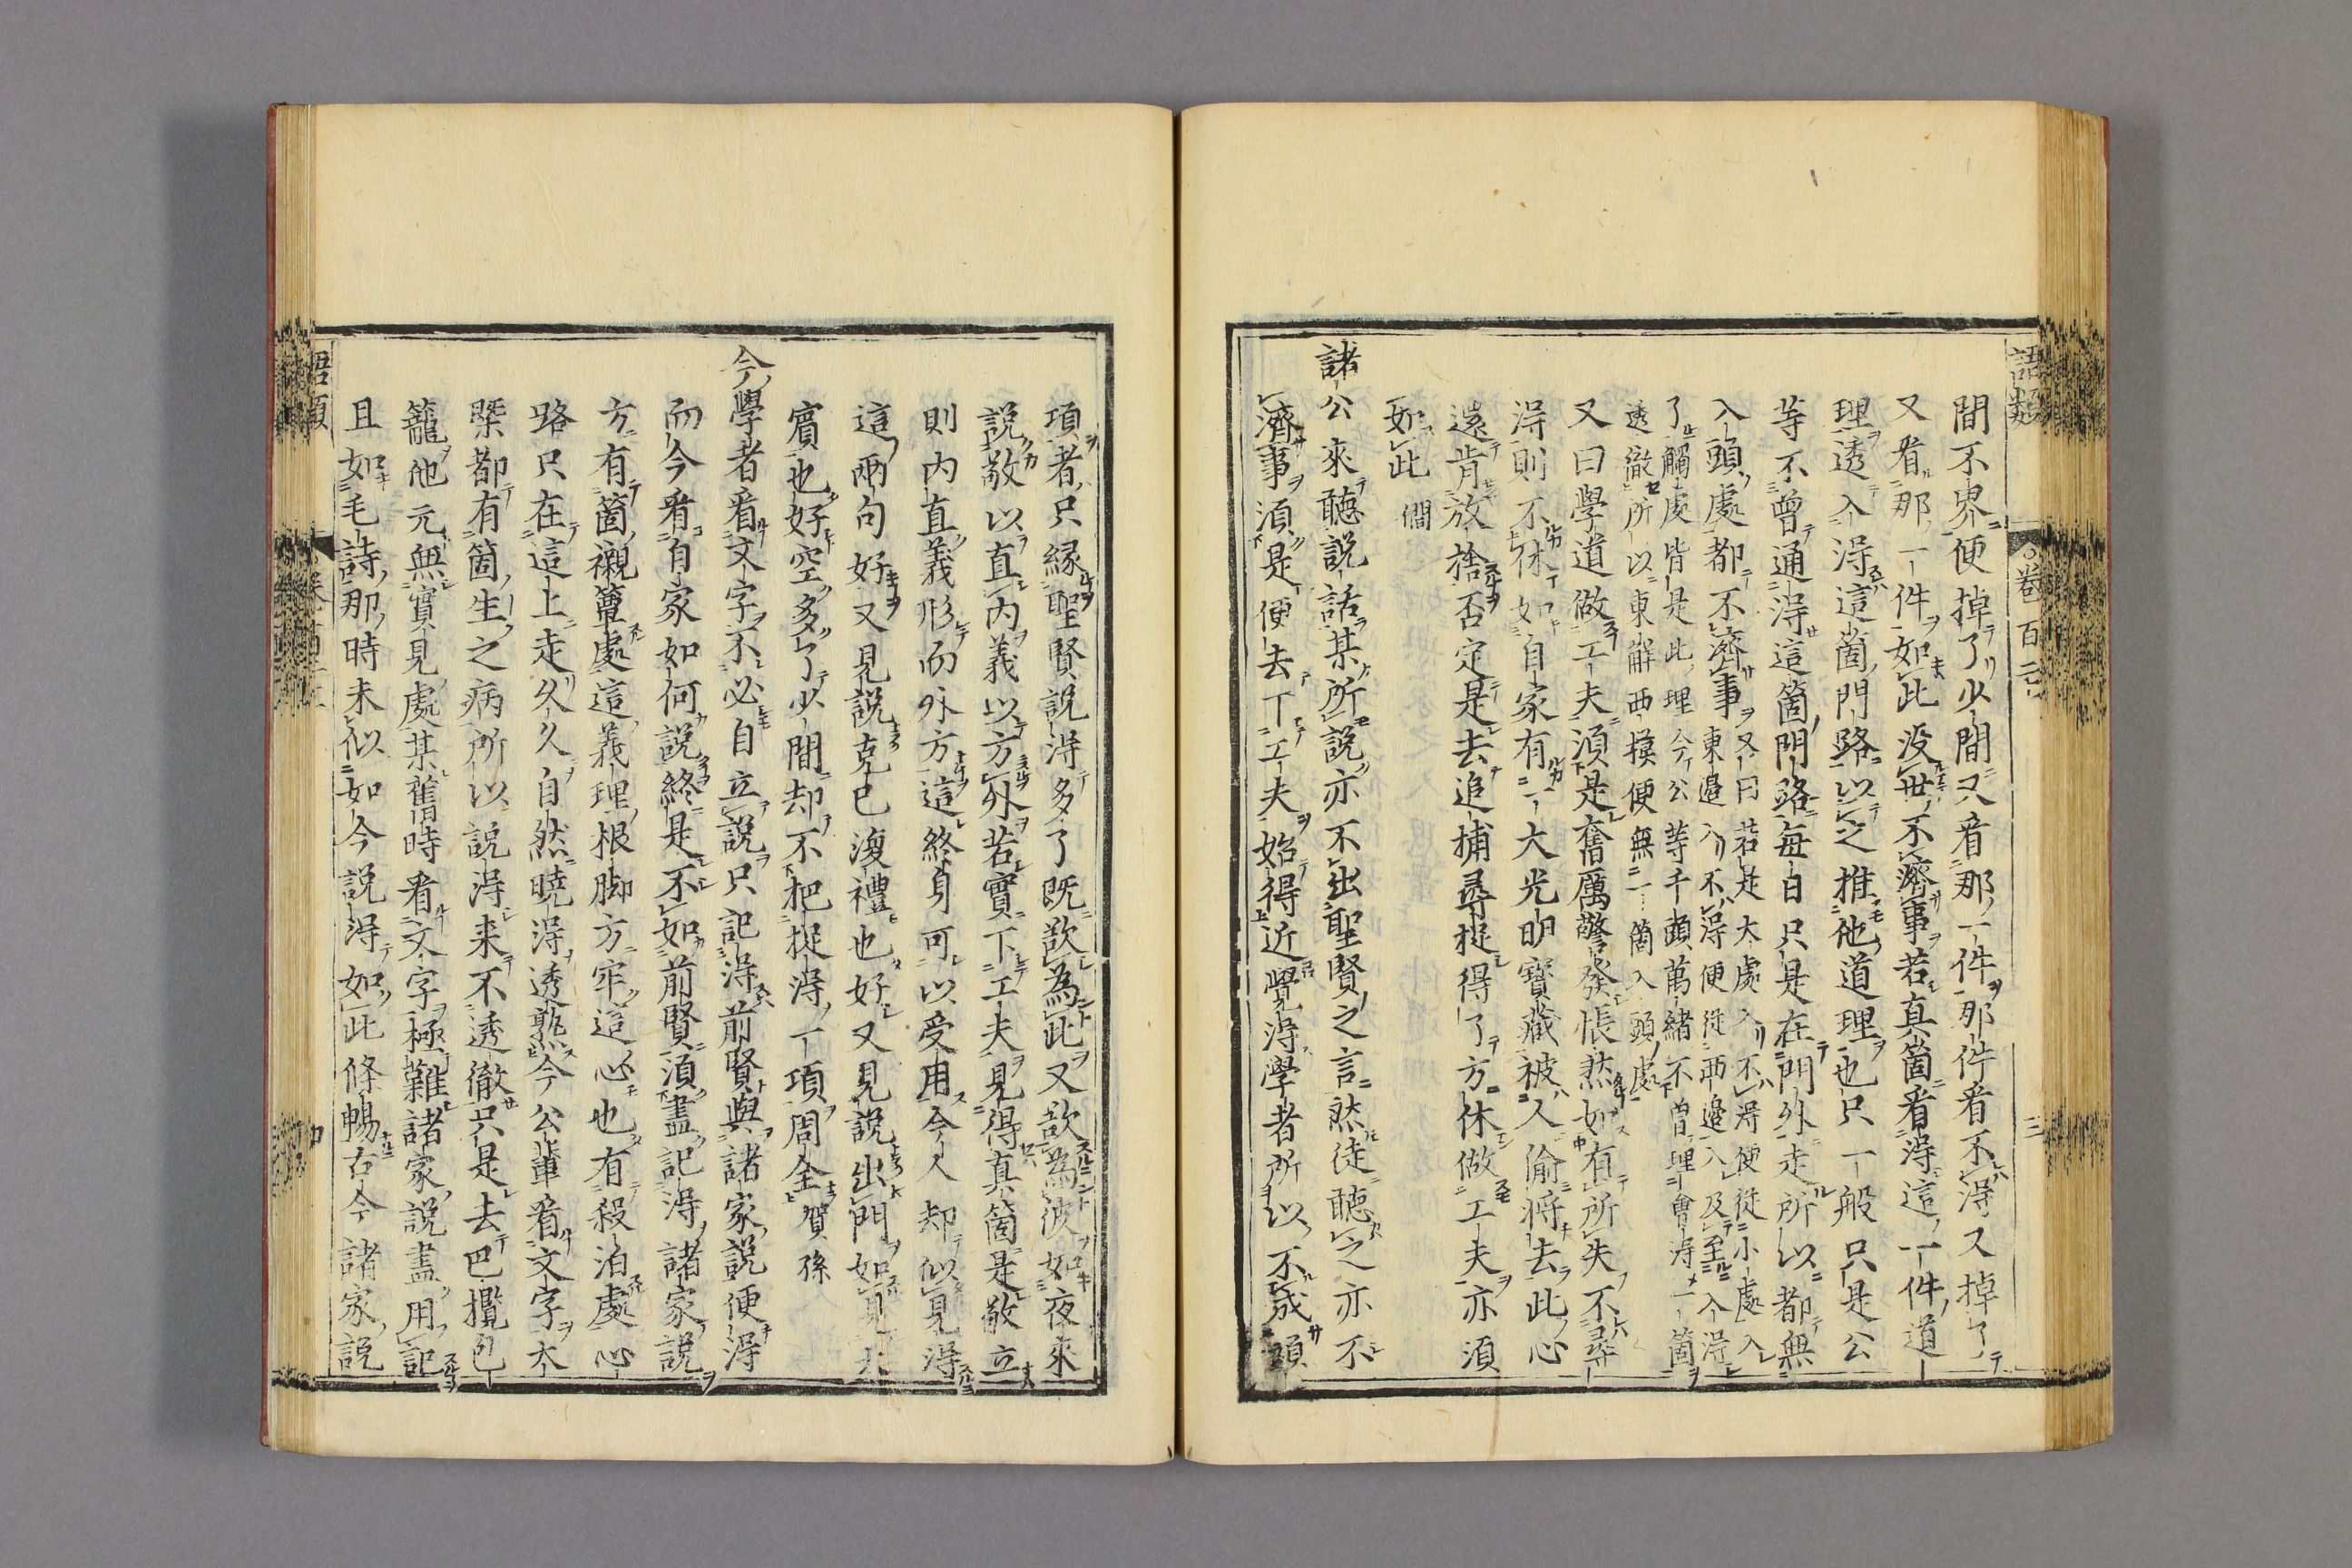 語類
卷百二十一
三
間不界便掉了少間又看那一件那件看不得又掉了
又看那一件如此没世不濟事若真箇看得這一件道
理透入得這箇門路以之推他道理也只一般只是公
等不曾通得這箇門路每日只是在門外走所以都無
入頭處都不濟事
又曰若是大處入不得便從小處入
東邊入不得便從西邊入及至入得
了觸處皆是此理今公等千頭萬緒不曾理會得一箇
透徹所以東解西模便無一箇入頭處
又曰學道做工夫須是奮厲警發悵然如有所失不尋
得則不休如自家有一大光明寶藏被人偷將去此心
還肯放捨否定是去追捕尋捉得了方休做工夫亦須
如此 僩
諸公來聽說話某所說亦不出聖賢之言然徒聽之亦不
濟事須是便去下工夫始得近覺得學者所以不成頭
項者只緣聖賢說得多了既欲為此又欲為彼如夜來
說敬以直內義以方外若實下工夫見得真箇是敬立
則內直義形而外方這終身可以受用今人却似見得
這兩句好又見說克己復禮也好又見說出門如見大
賓也好空多了少間却不把捉得一項周全 賀孫
今學者看文字不必自立說只記得前賢與諸家說便得
而今看自家如何說終是不如前賢須盡記得諸家說
方有箇襯簟處這義理根脚方牢這心也有殺泊處心
路只在這上走久久自然曉得透熟今公輩看文字大
槩都有箇生之病所以說得来不透徹只是去巴攬包
籠他元無實見處某舊時看文字極難諸家說盡用記
且如毛詩那時未似如今說得如此條暢古今諸家說
語類